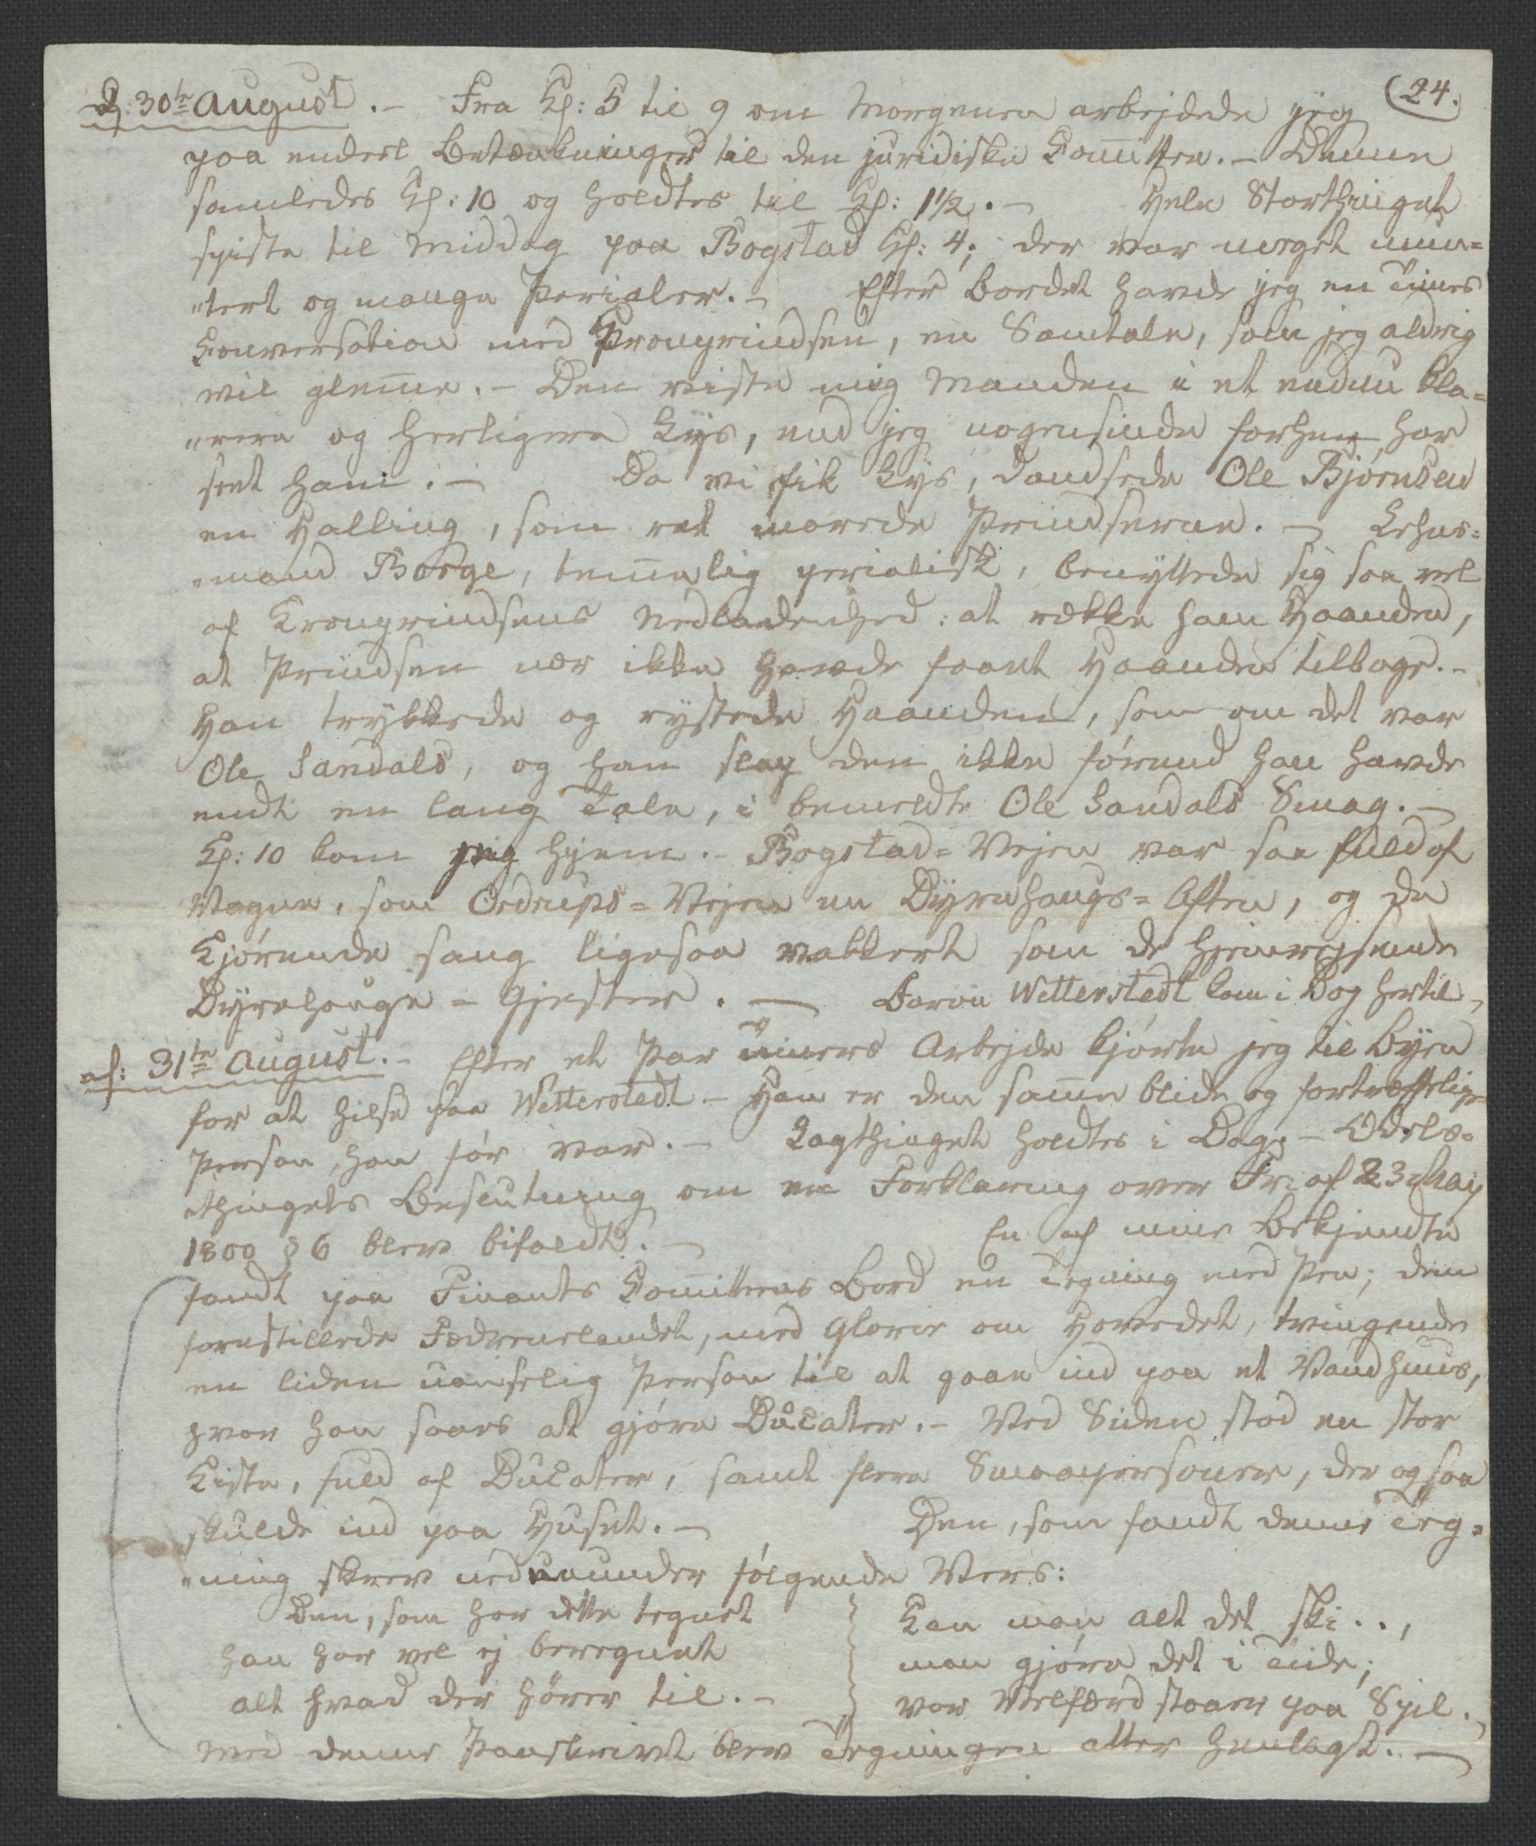 24.
D: 30te August. – Fra Kl: 5 til 9 om Morgenen arbejdede jeg
paa endeel Betænkninger til den juridiske Committee. – Denne
samledes Kl: 10 og holdtes til Kl: 1½. – Hele Storthinget
spiste til Middag paa Bogstad Kl: 4; der var meget mun=
"tert og mange Perialer. – Efter Bordet havde jeg en Times
Conversation med Kronprindsen, en Samtale, som jeg aldrig
vil glem̅e. – Den viste mig Manden i et endnu kla=
"rere og herligere Lys, end jeg nogensinde forhen har
seet ham. – Da vi fik Lys, dandsede Ole Bjørnsen
en Halling, som ret morede Prindserne. – Lehns=
"mand Borge, tem̅elig perialisk, benyttede sig saa vel
af Kronprindsens Nedladenhed: at række ham Haanden,
at Prindsen nær ikke havde faaet Haanden tilbage. –
Han trykkede og rystede Haanden, som om det var
Ole Sandals, og han slap den ikke førend han havde
endt en lang Tale, i bemeldte Ole Sandals Smag. –
Kl: 10 kom jeg hjem. – Bogstad=Vejen var saa fuld af
Vogne, som Ordrups=Vejen en Dyrehaugs=Aften, og de
Kjørende sang ligesaa vakkert som de hjemrejsende
Dyrehauge=Gjester. – Baron Wetterstedt kom i Dag hertil –
d: 31te August. – Efter et Par Timers Arbejde kjørte jeg til Byen
for at hilse paa Wetterstedt – Han er den sam̅e blide og fortræffelige
Person, han før var. – Lagthinget holdtes i Dag; – Odels=
"thingets Beslutning om en Forklaring over Fr: af 23 May
1800 § 6 blev bifaldt. – En af mine Bekjendte
fandt paa Finants Com̅itteens Bord en Tegning med Pen; den
forestillede Fædrenelandet, med Glorie om Hovedet, tvingende
en liden uanselig Person til at gaae ind paa et Vandhuus,
hvor han saaes at gjøre Ducater. – Ved Siden stod en stor
Kiste, fuld af Ducater, samt flere Smaapersoner, der ogsaa
skulde ind paa Huset. – Den, som fandt denne Teg=
"ning skrev nedenunder følgende Vers:
Den, som har dette tegnet
han har vel ej beregnet
alt hvad der hører til. –
Kan man alt det ski..,
man gjøre det i Tide;
vor Velfærd staaer paa Spil. –
Med denne Paaskrivt blev Tegningen atter henlagt. –